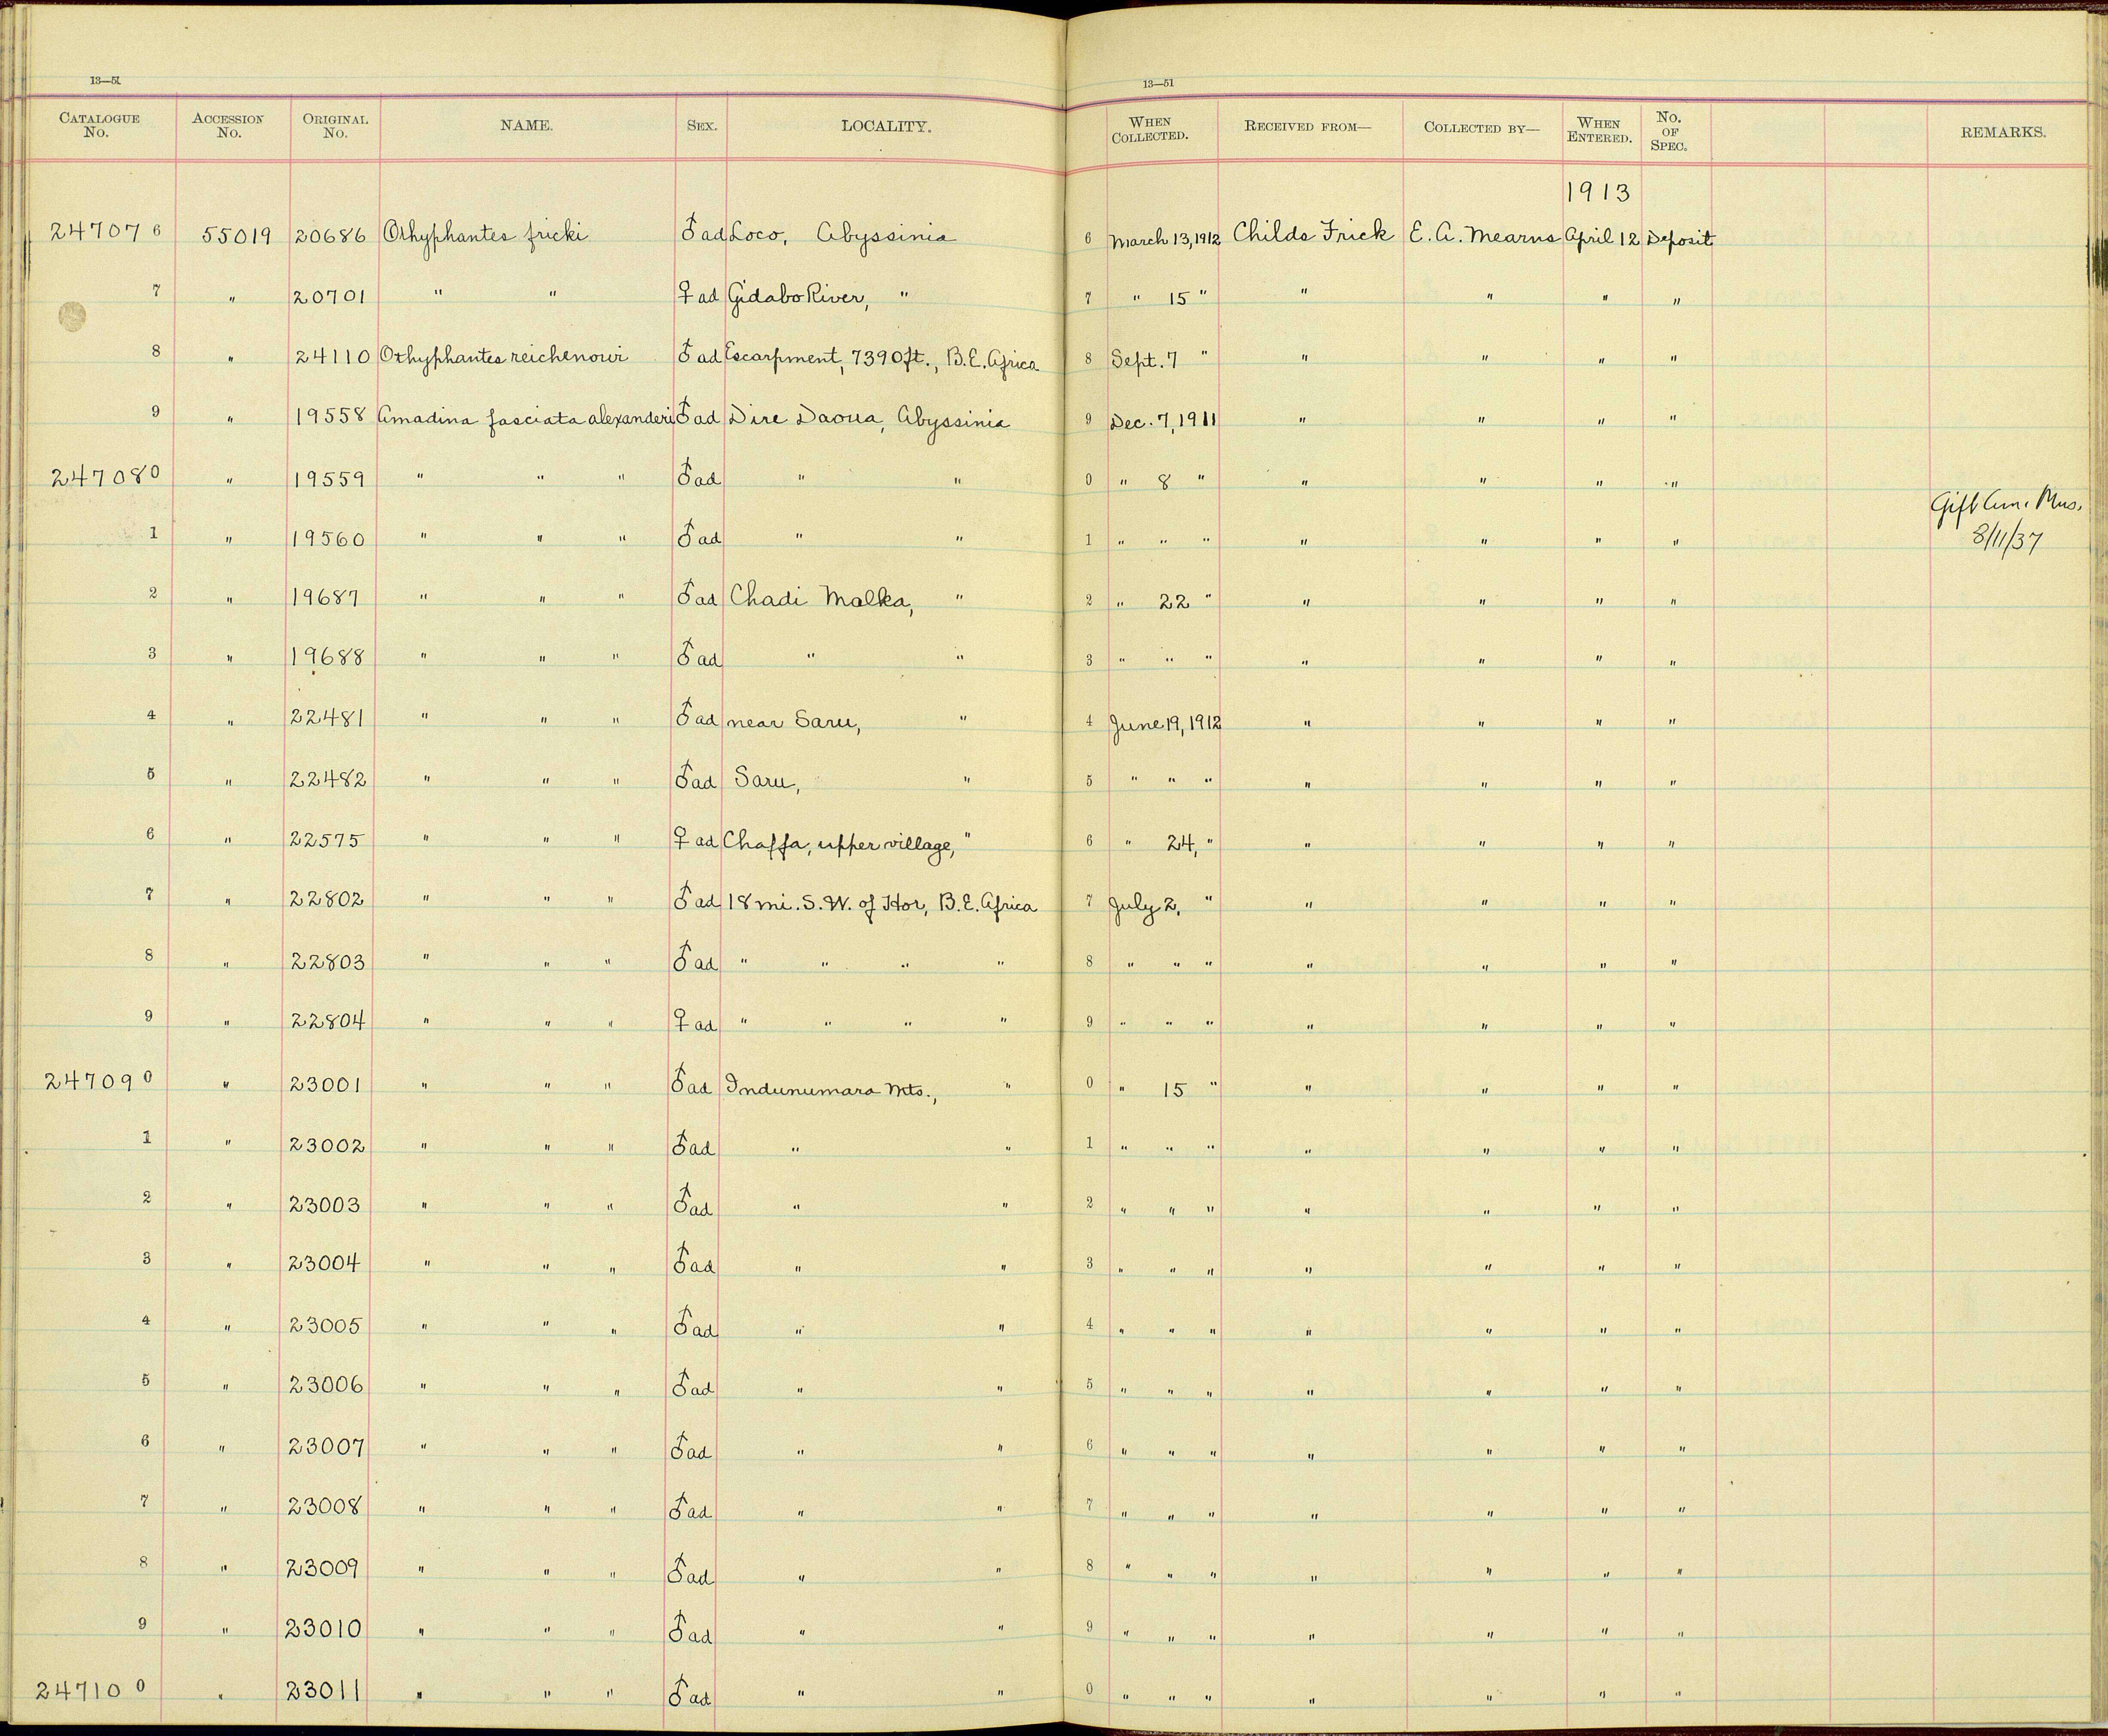 13—51 13—51
CATALOGUE No. ACCESSION No. ORIGINAL No. NAME. SEX. LOCALITY. WHEN COLLECTED. RECEIVED FROM— COLLECTED BY— WHEN ENTERED. No. OF SPEC. REMARKS.
1913
247076 55019 20686 Othyphantes fricki ♂ ad Loco, Abyssinia 6 March 13, 1912 Childs Frick E. A. Mearns April 12 Deposit
7 " 20701 " " ♀ ad Gidabo River, " 7 " 15 " " " " "
8 " 24110 Othyphantes reichenowi ♂ ad Escarpment, 7390 ft., B. E. Africa 8 Sept. 7 " " " " "
9 " 19558 Amadina fasciata alexanderi ♂ ad Dire Daoua, Abyssinia 9 Dec. 7, 1911 " " " "
247080 " 19559 " " " ♂ ad " " 0 " 8 " " " " "
1 " 19560 " " " ♂ ad " " 1 " " " " " " " Gift Am. Mus. 8/11/37
2 " 19687 " " " ♂ ad Chadi Malka, " 2 " 22 " " " " "
3 " 19688 " " " ♂ ad " " 3 " " " " " " "
4 " 22481 " " " ♂ ad near Saru, " 4 June 19, 1912 " " " "
5 " 22482 " " " ♂ ad Saru, " 5 " " " " " " "
6 " 22575 " " " ♀ ad Chaffa, upper village, " 6 " 24, " " " " "
7 " 22802 " " " ♂ ad 18 mi. S. W. of Hor, B. E. Africa 7 July 2, " " " " "
8 " 22803 " " " ♂ ad " " " " 8 " " " " " " "
9 " 22804 " " " ♀ ad " " " " 9 " " " " " " "
247090 " 23001 " " " ♂ ad Indunumara Mts., " 0 " 15 " " " " "
1 " 23002 " " " ♂ ad " " 1 " " " " " " "
2 " 23003 " " " ♂ ad " " 2 " " " " " " "
3 " 23004 " " " ♂ ad " " 3 " " " " " " "
4 " 23005 " " " ♂ ad " " 4 " " " " " " "
5 " 23006 " " " ♂ ad " " 5 " " " " " " "
6 " 23007 " " " ♂ ad " " 6 " " " " " " "
7 " 23008 " " " ♂ ad " " 7 " " " " " " "
8 " 23009 " " " ♂ ad " " 8 " " " " " " "
9 " 23010 " " " ♂ ad " " 9 " " " " " " "
247100 " 23011 " " " ♂ ad " " 0 " " " " " " "